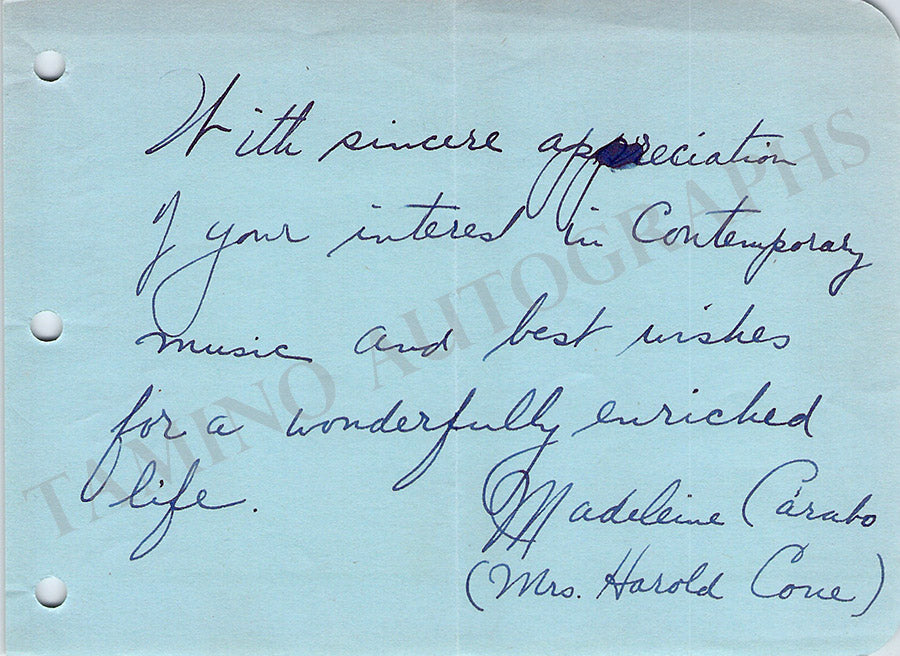 With sincere appreciation
of your interest in Contemporary
music and best wishes
for a wonderfully enriched
life.
Madeleine Carabo
(Mrs. Harold Cone)
TAMINO AUTOGRAPHS